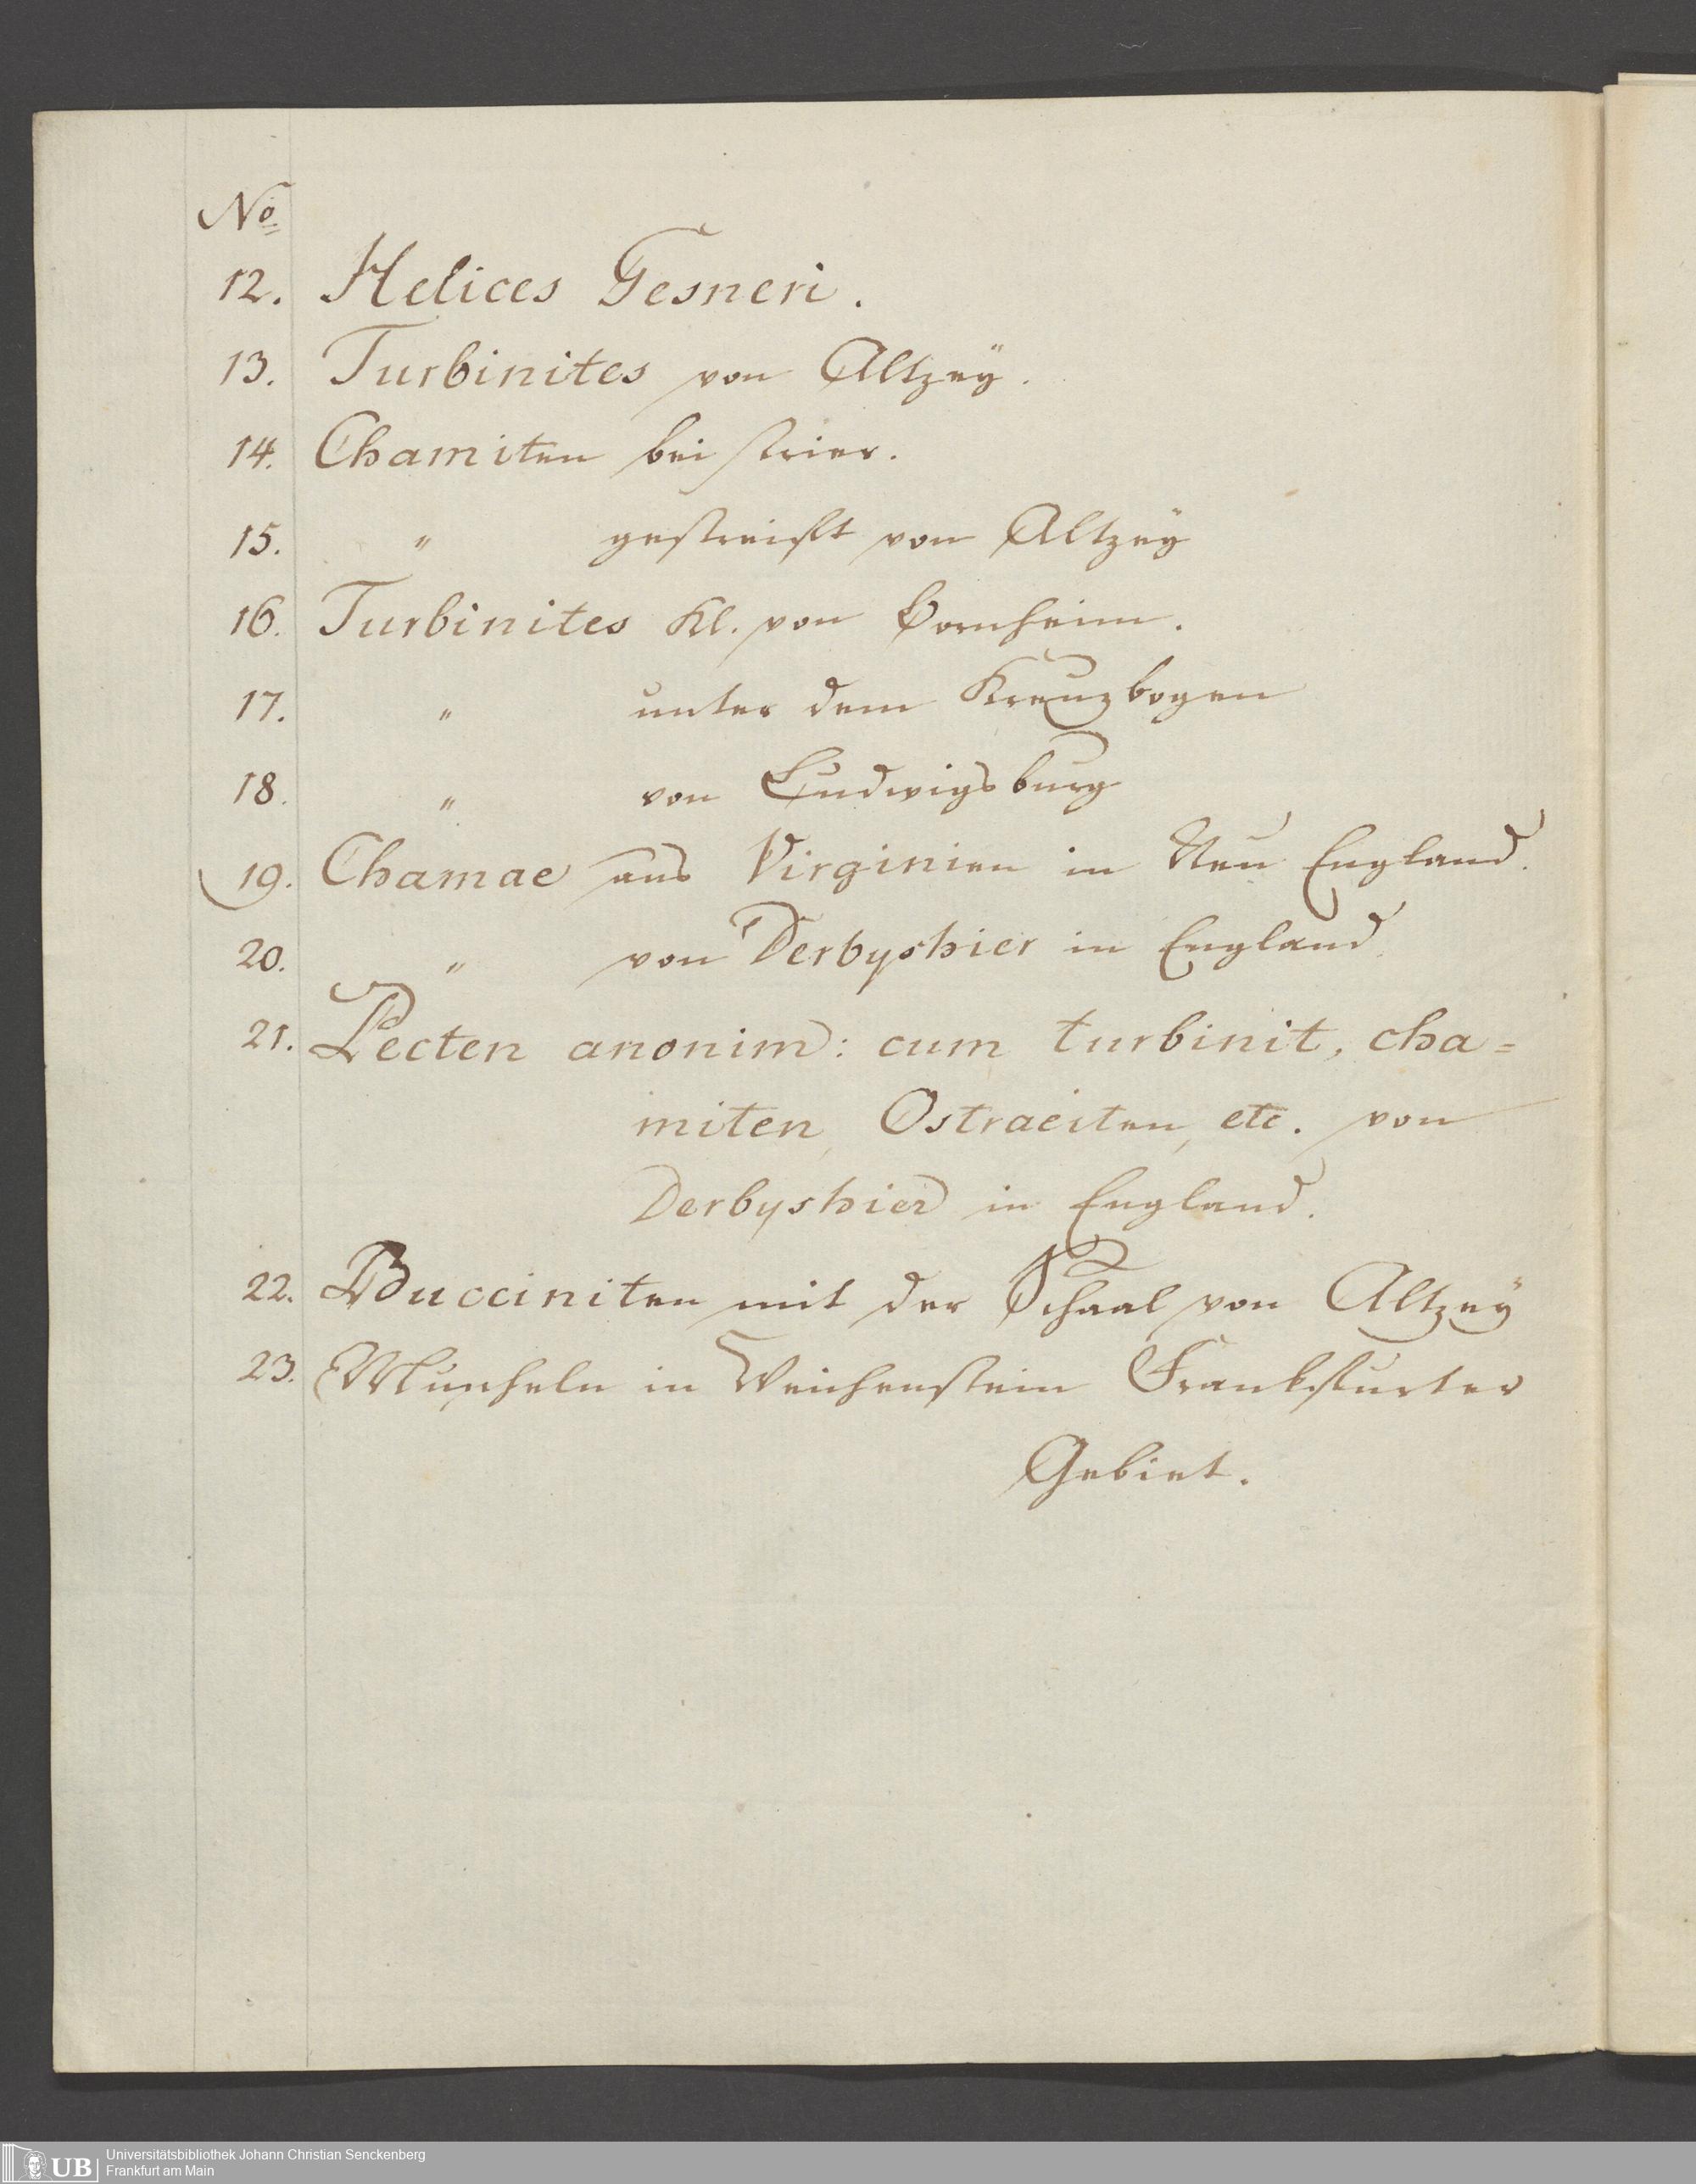 No
12. Helices Gesneri.
13. Turbinites von Altzeÿ.
14. Chamiten bei strier.
15. " gestreift von Altzeÿ
16. Turbinites Kl. von Bornheim.
17. " unter dem Kreuzbogen
18. " von Ludwigsburg
19. Chamae aus Virginien in Neu England.
20. " von Derbyshier in England.
21. Pecten anonim: cum turbinit, cha=
miten, Ostraeiten, etc. von
Derbyshier in England.
22. Bucciniten mit der Schaal von Altzeÿ
23. Muscheln in Weichenstein Frankfurter
Gebiet.
UB Universitätsbibliothek Johann Christian Senckenberg
Frankfurt am Main